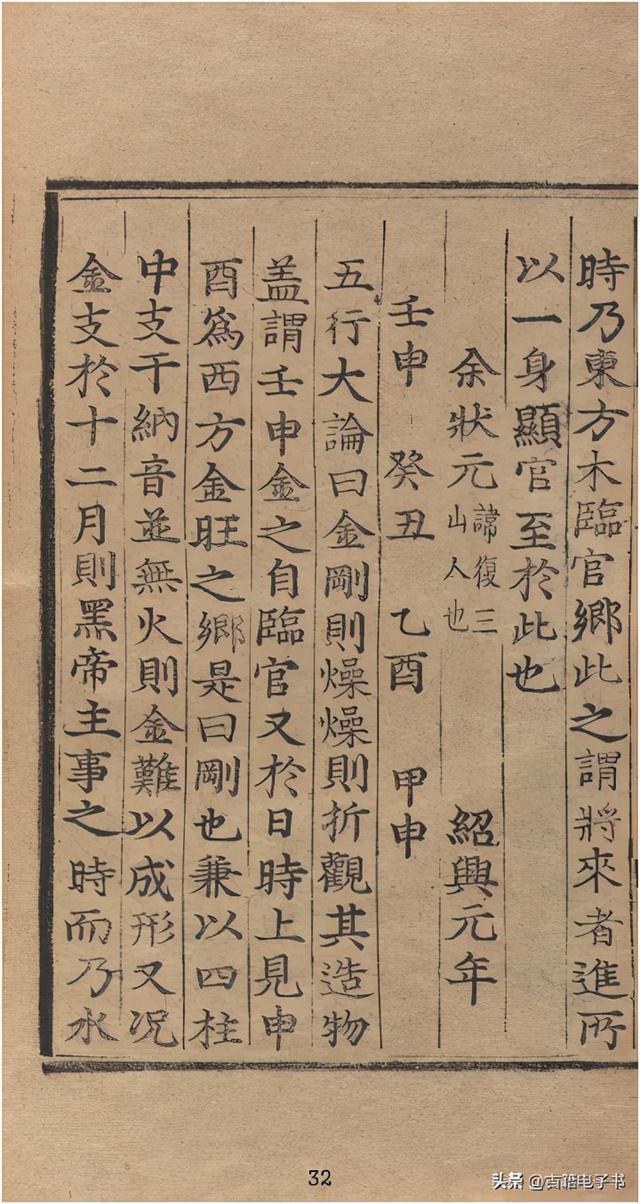 時乃東方木臨官鄉此之謂將來者進所
以一身顯官至於此也
余狀元諱復三山人也 紹興元年
壬申 癸丑 乙酉 甲申
五行大論曰金剛則燥燥則折觀其造物
盖謂壬申金之自臨官又於日時上見申
酉爲西方金旺之鄉是曰剛也兼以四柱
中支干納音並無火則金難以成形又况
金支於十二月則黑帝主事之時而乃水
32
头条 @古籍电子书